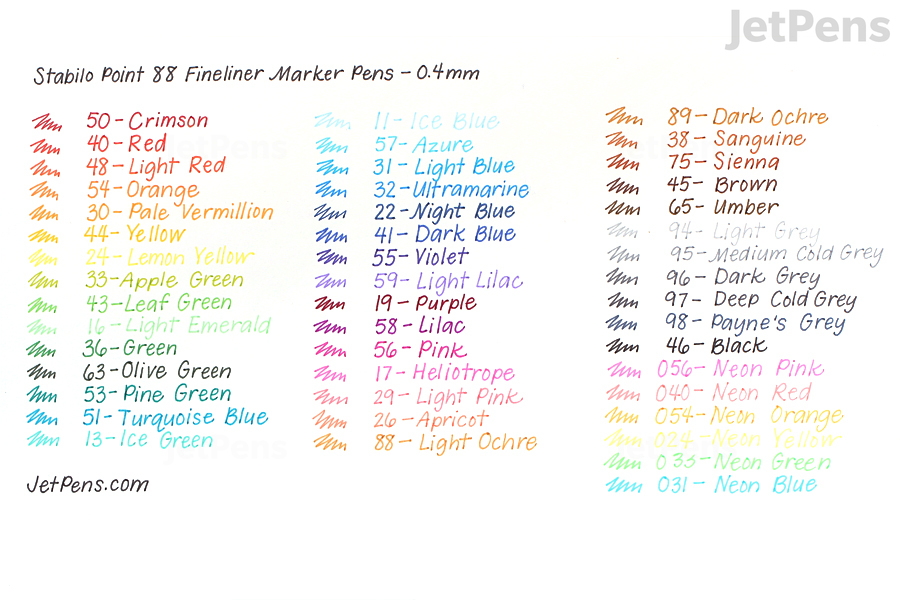 JetPens
Stabilo Point 88 Fineliner Marker Pens - 0.4mm
50 - Crimson
40 - Red
48 - Light Red
54 - Orange
30 - Pale Vermillion
44 - Yellow
24 - Lemon Yellow
33 - Apple Green
43 - Leaf Green
16 - Light Emerald
36 - Green
63 - Olive Green
53 - Pine Green
51 - Turquoise Blue
13 - Ice Green
11 - Ice Blue
57 - Azure
31 - Light Blue
32 - Ultramarine
22 - Night Blue
41 - Dark Blue
55 - Violet
59 - Light Lilac
19 - Purple
58 - Lilac
56 - Pink
17 - Heliotrope
29 - Light Pink
26 - Apricot
88 - Light Ochre
89 - Dark Ochre
38 - Sanguine
75 - Sienna
45 - Brown
65 - Umber
94 - Light Grey
95 - Medium Cold Grey
96 - Dark Grey
97 - Deep Cold Grey
98 - Payne's Grey
46 - Black
056 - Neon Pink
040 - Neon Red
054 - Neon Orange
024 - Neon Yellow
033 - Neon Green
031 - Neon Blue
JetPens.com